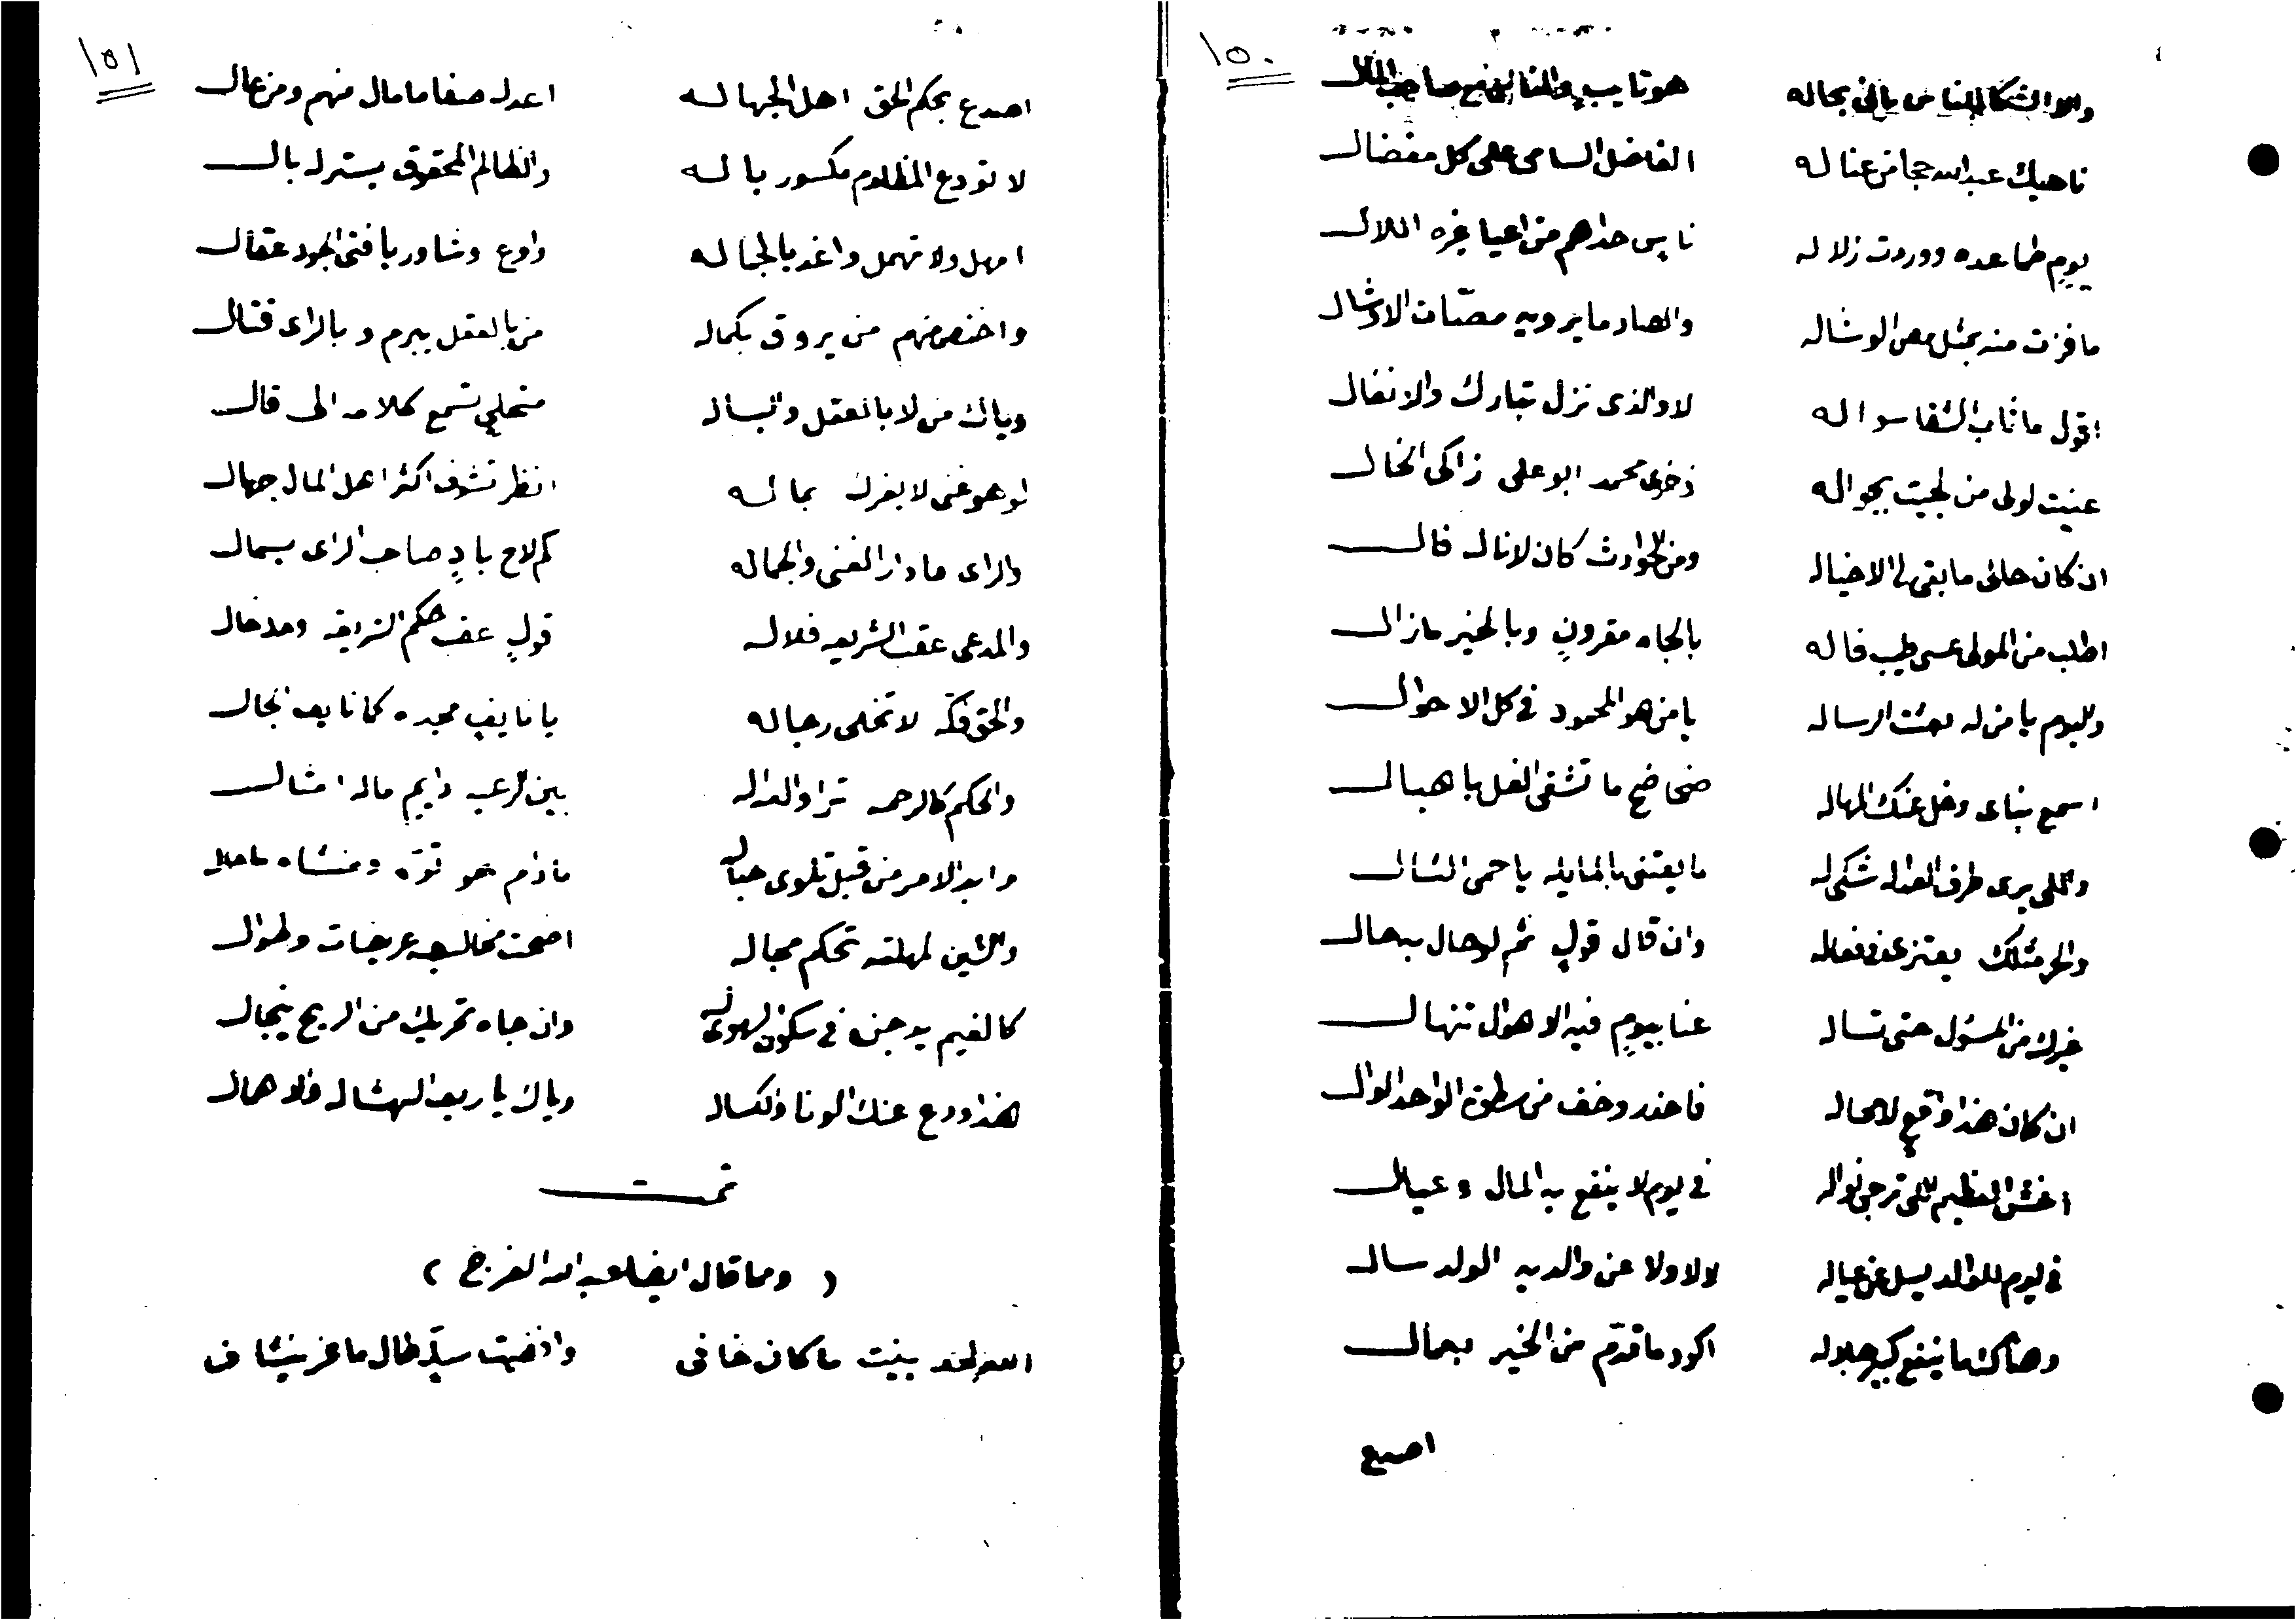 ١٥٠
ناهيك عبدالله حجا من عنا له الفاضل السامى على كل مفضال
يومٍ طما عده ووردت زلاله ناس حداهم من اعيا غره اللال
ما فزت منه بمثل مص الوشاله والصاد ما يرويه مصّات الاوشال
اقول ما ثاب الشفا سواله لا والذى نزل تبارك والانفال
عنيت لولى من لجيت بجواله ذخرى محمد ابو على زاكى الخال
ان كان حلى ما بقى لى الاخياله ومن الحوادث كان لاناله فال
اطلب من المولى عسى طيب فاله بالجاه مقرونٍ وبالخير مازال
واليوم يا من له بعثت الرساله يا من هو المحمود فى كل الاحوال
اسمع بناى وخل عنك المهاله ضحاضح ما تشقى الغل باهبال
واللى يرى طرف العداله شكى له ما يعتنى بالمايله يا حمى التال
والحر مثلك يعتزى فى فعاله وان قال قولٍ ثم لو حال به حال
خبرك من المسؤل حتى تساله عنا بيومٍ فيه الاهوال تنهال
ان كان هذا واقعٍ لا محاله فاحذر وخف من سطوة الواحد الوال
اخش العظيم اللى ترجى نواله فى يوم لا ينفع به المال وعيال
فى يوم للوالد يسل عن عياله لا ولا عن والديه الولد سال
وهناك ما ينفع كبيرٍ جلاله اكود ما قدّم من الخير بعمال
اصدع
١٥١
اصدع بحكم الحق اهل الجهاله اعدله صفا ما مال منهم ومن عال
لا تودع المظلوم مكسور باله والظالم المحقوق يستر له بال
امهل ولا تهمل واغد بالجماله واوع وشاور يا فتى الجود عقال
واختص منهم من يروق بكماله من بالعقل يبرم وبالراى فتال
وياك من لا بالعقل والبساله متحلي تسمع كلامه الى قال
لو هو غنى لا يغرك بماله انظر تشوف اكثر اهل المال جهال
والراى ما دار الغنى والجماله كم لاح بادٍ صاحب الراى بسمال
والمدعى عقب الشريعه فلا له قولٍ عقب حكم الشرايعه ومدخال
والحق فكه لا تخلى رجاله يا نايفٍ مجده كما نايف الجال
والحكم كالرحمه ترا والعداله بين الرعيه دايم ماله امثال
وابد الامر من قبل تلوى حباله مادام هو توّه ومنشاه ماطال
والشين لمهلته تحكم مجاله اضحت مخاليبه عريضات وطوال
كالغيم يدجن فى سكون الهوى له وان جاه تحريك من الريح ينجال
هذا ودع عنك الونا والكساله وياك يا ريف الهشاله والاهمال
تمت
( ومما قال ايضا عبدالله الفرج )
العمر لحد بينت ما كان خافى واقفيت سيلٍ طال ما غر بنشاف